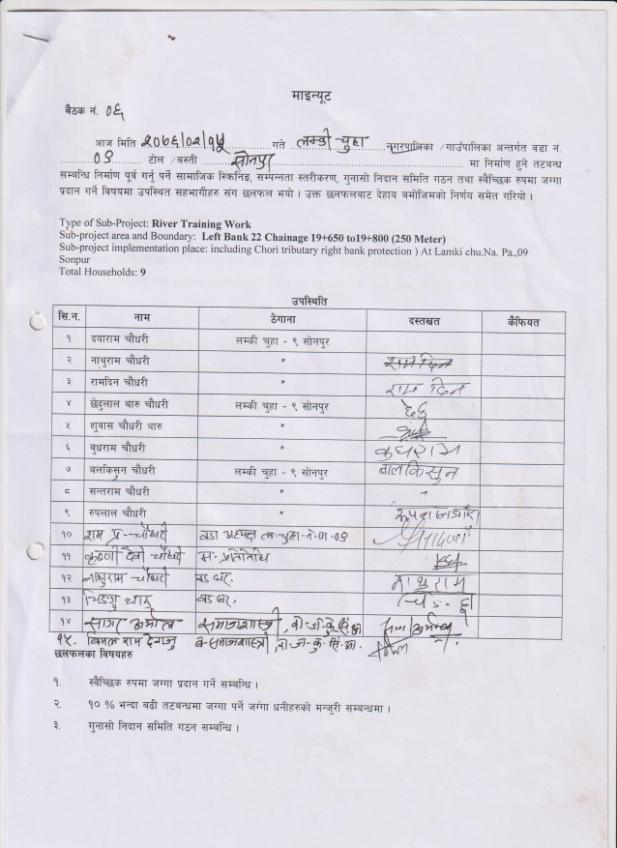 माइन्यूट
बैठक नं. ०६
आज मिति २०७६/०२/१५ गते लम्की चुहा नगरपालिका /गाउँपालिका अन्तर्गत वडा नं.
०९ टोल /बस्ती सोनपुर मा निर्माण हुने तटबन्ध
सम्बन्धि निर्माण पूर्व गर्नु पर्ने सामाजिक स्किनिङ, सम्पन्नता स्तरीकरण, गुनासो निदान समिति गठन तथा स्वैच्छिक रुपमा जग्गा
प्रदान गर्ने विषयमा उपस्थित सहभागीहरु संग छलफल भयो । उक्त छलफलबाट देहाय बमोजिमको निर्णय समेत गरियो ।
Type of Sub-Project: River Training Work
Sub-project area and Boundary: Left Bank 22 Chainage 19+650 to19+800 (250 Meter)
Sub-project implementation place: including Chori tributary right bank protection ) At Lamki chu.Na. Pa.,09
Sonpur
Total Households: 9
उपस्थिति
सि.न. नाम ठेगाना दस्तखत कैफियत
१ दयाराम चौधरी लम्की चुहा - ९ सोनपुर
२ नाथुराम चौधरी "
३ रामदिन चौधरी " राम दिन
४ छेदुलाल थारु चौधरी लम्की चुहा - ९ सोनपुर छेदु
५ शुवास चौधरी थारु "
६ बुधराम चौधरी " बुधराम
७ बलकिसुन चौधरी लम्की चुहा - ९ सोनपुर बालकिसुन
८ सन्तराम चौधरी " "
९ रुपलाल चौधरी "
१० राम प्र. चौधरी वडा अध्यक्ष ल.चुहा.न.पा.०९
११ कृष्णी देवी चौधरी म. प्रतिनिधि
१२ नाथुराम चौधरी नाथुराम
१३ थारु
१४ सागर समाजशास्त्री,
१५. बिमल राम देगजु व.समाजशास्त्री,
छलफलका विषयहरु
१. स्वैच्छिक रुपमा जग्गा प्रदान गर्ने सम्बन्धि ।
२. १० % भन्दा बढी तटबन्धमा जग्गा पर्ने जग्गा धनीहरुको मन्जुरी सम्बन्धमा ।
३. गुनासो निदान समिति गठन सम्बन्धि ।